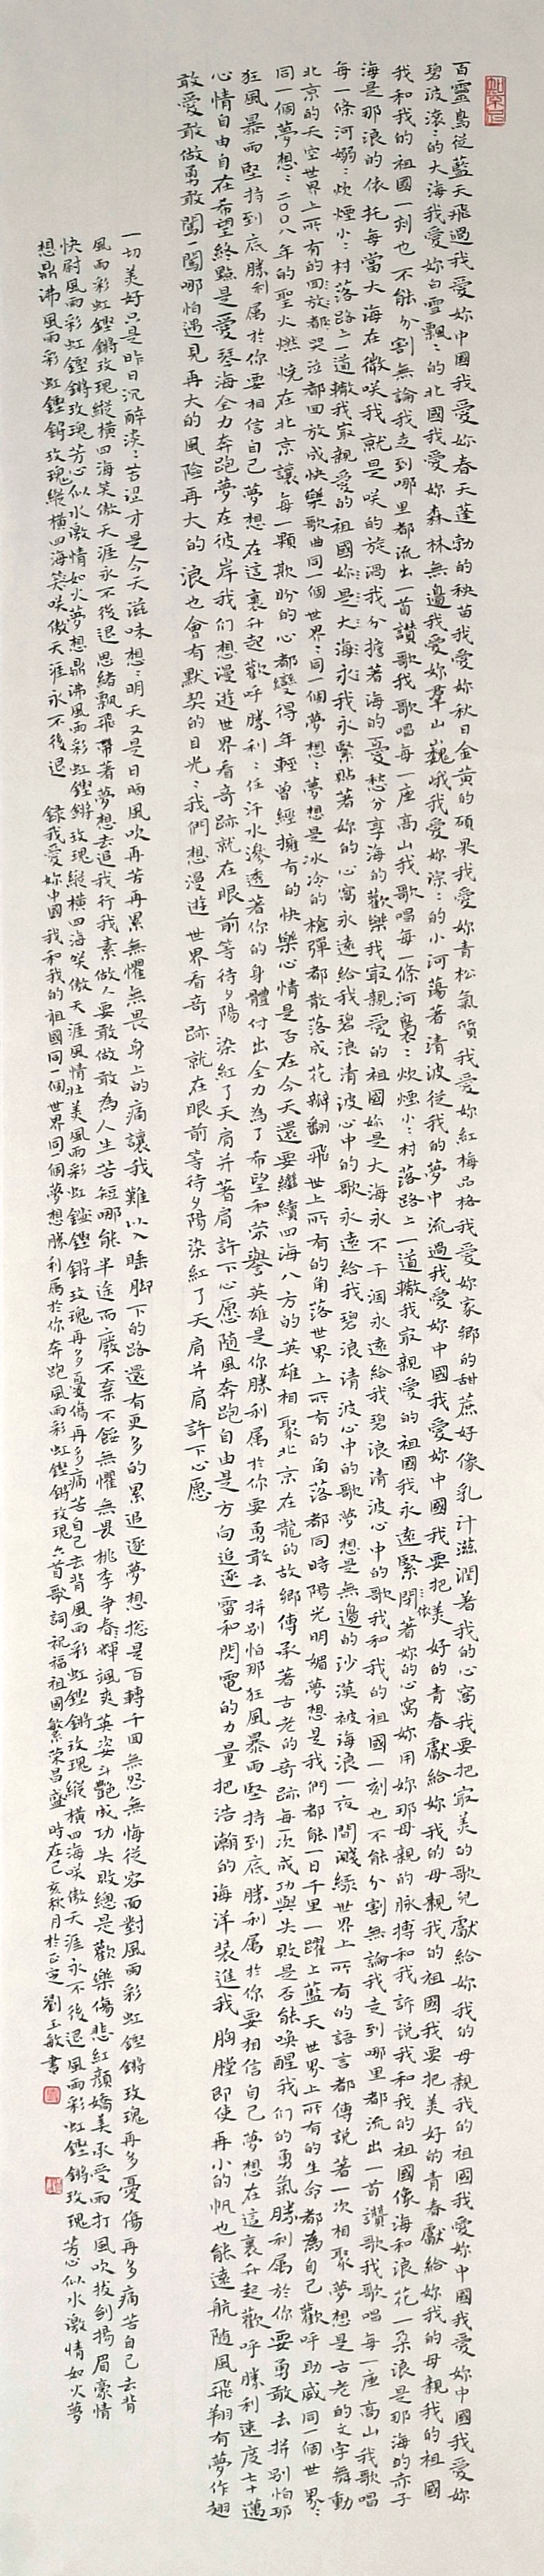 百靈鳥從藍天飛過我愛妳中國我愛妳春天蓬勃的秧苗我愛妳秋日金黃的碩果我愛妳青松氣質我愛妳紅梅品格我愛妳家鄉的甜蔗好像乳汁滋潤著我的心窩我要把最美的歌兒獻給妳我的母親我的祖國我愛妳中國我愛妳中國我愛妳
碧波滾：的大海我愛妳白雪飄：的北國我愛妳森林無邊我愛妳群山巍峨我愛妳淙：的小河蕩著清波從我的夢中流過我愛妳中國我愛妳中國我要把美好的青春獻給妳我的母親我的祖國我要把美好的青春獻給妳我的母親我的祖國
我和我的祖國一刻也不能分割無論我走到哪里都流出一首讚歌我歌唱每一座高山我歌唱每一條河裊：炊煙小：村落路上一道轍我最親愛的祖國我永遠緊依著妳的心窩妳用妳那母親的脉搏和我訴說我和我的祖國像海和浪花一朵浪是那海的赤子
海是那浪的依托每當大海在微咲我就是咲的旋渦我分擔著海的憂愁分享海的歡樂我最親愛的祖國妳是大海永不干涸永遠給我碧浪清波心中的歌我和我的祖國一刻也不能分割無論我走到哪里都流出一首讚歌我歌唱每一座高山我歌唱
每一條河嫋：炊煙小：村落路上一道轍我最親愛的祖國妳是大海永我永緊貼著妳的心窩永遠給我碧浪清波心中的歌永遠給我碧浪清波心中的歌夢想是無邊的沙漠被海浪一夜間濺綠世界上所有的語言都傳說著一次相聚夢想是古老的文字舞動
北京的天空世界上所有的回放都哭泣都回放成快樂歌曲同一個世界：同一個夢想：夢想是冰冷的槍彈都散落成花瓣翻飛世上所有的角落世界上所有的角落都同時陽光明媚夢想是我們都能一日千里一躍上藍天世界上所有的生命都為自己歡呼助威同一個世界：
同一個夢想：二〇〇八年的聖火燃燒在北京讓每一顆欺盼的心都變得年輕曾經擁有的快樂心情是否在今天還要繼續四海八方的英雄相聚北京在龍的故鄉傳承著古老的奇跡每一次成功與失敗是否能喚醒我们的勇氣勝利属於你要勇敢去拼别怕那
狂風暴雨堅持到底勝利属於你要相信自己夢想在這裏升起歡呼勝利：任汗水滲透著你的身體付出全力為了希望和榮譽英雄是你勝利属於你要勇敢去拼别怕那狂風暴雨堅持到底勝利属於你要相信自己夢想在這裏升起歡呼勝利速度七十邁
心情自由自在希望終點是愛琴海全力奔跑夢在彼岸我们想漫遊世界看奇跡就在眼前等待夕陽染紅了天肩并著肩許下心愿随風奔跑自由是方向追逐雷和閃電的力量把浩瀚的海洋裝進我胸膛即使再小的帆也能遠航随風飛翔有夢作翅
敢愛敢做勇敢闖一闖哪怕遇見再大的風险再大的浪也會有默契的目光：我們想漫遊世界看奇跡就在眼前等待夕陽染紅了天肩并肩許下心愿
一切美好只是昨日沉醉淡：苦澀才是今天滋味想：明天又是日晒風吹再苦再累無懼無畏身上的痛讓我難以入睡脚下的路還有更多的累追逐夢想総是百轉千回無怨無悔從容面對風雨彩虹鏗鏘玫瑰再多憂傷再多痛苦自己去背
風雨彩虹鏗鏘玫瑰縱横四海笑傲天涯永不後退思緒飄飛帶著夢想去追我行我素做人要敢做敢為人生苦短哪能半途而廢不棄不餒無懼無畏桃李争春輝颯爽英姿斗艷成功失敗總是歡樂傷悲紅顏嬌美承受雨打風吹拔劍揚眉豪情
快尉風雨彩虹鏗鏘玫瑰芳心似水激情如火夢想鼎沸風雨彩虹鏗鏘玫瑰縱横四海笑傲天涯風情壯美風雨彩虹鏗鏘玫瑰再多憂傷再多痛苦自己去背風雨彩虹鏗鏘玫瑰縱横四海咲傲天涯永不後退風雨彩虹鏗鏘玫瑰芳心似水激情如火夢
想鼎沸風雨彩虹鏗鏘玫瑰縱横四海笑咲傲天涯永不後退 録我愛妳中國我和我的祖國同一個世界同一個夢想勝利属於你奔跑風雨彩虹鏗鏘玫瑰六首歌詞祝福祖國繁榮昌盛 時在己亥秋月於正定劉玉敏書